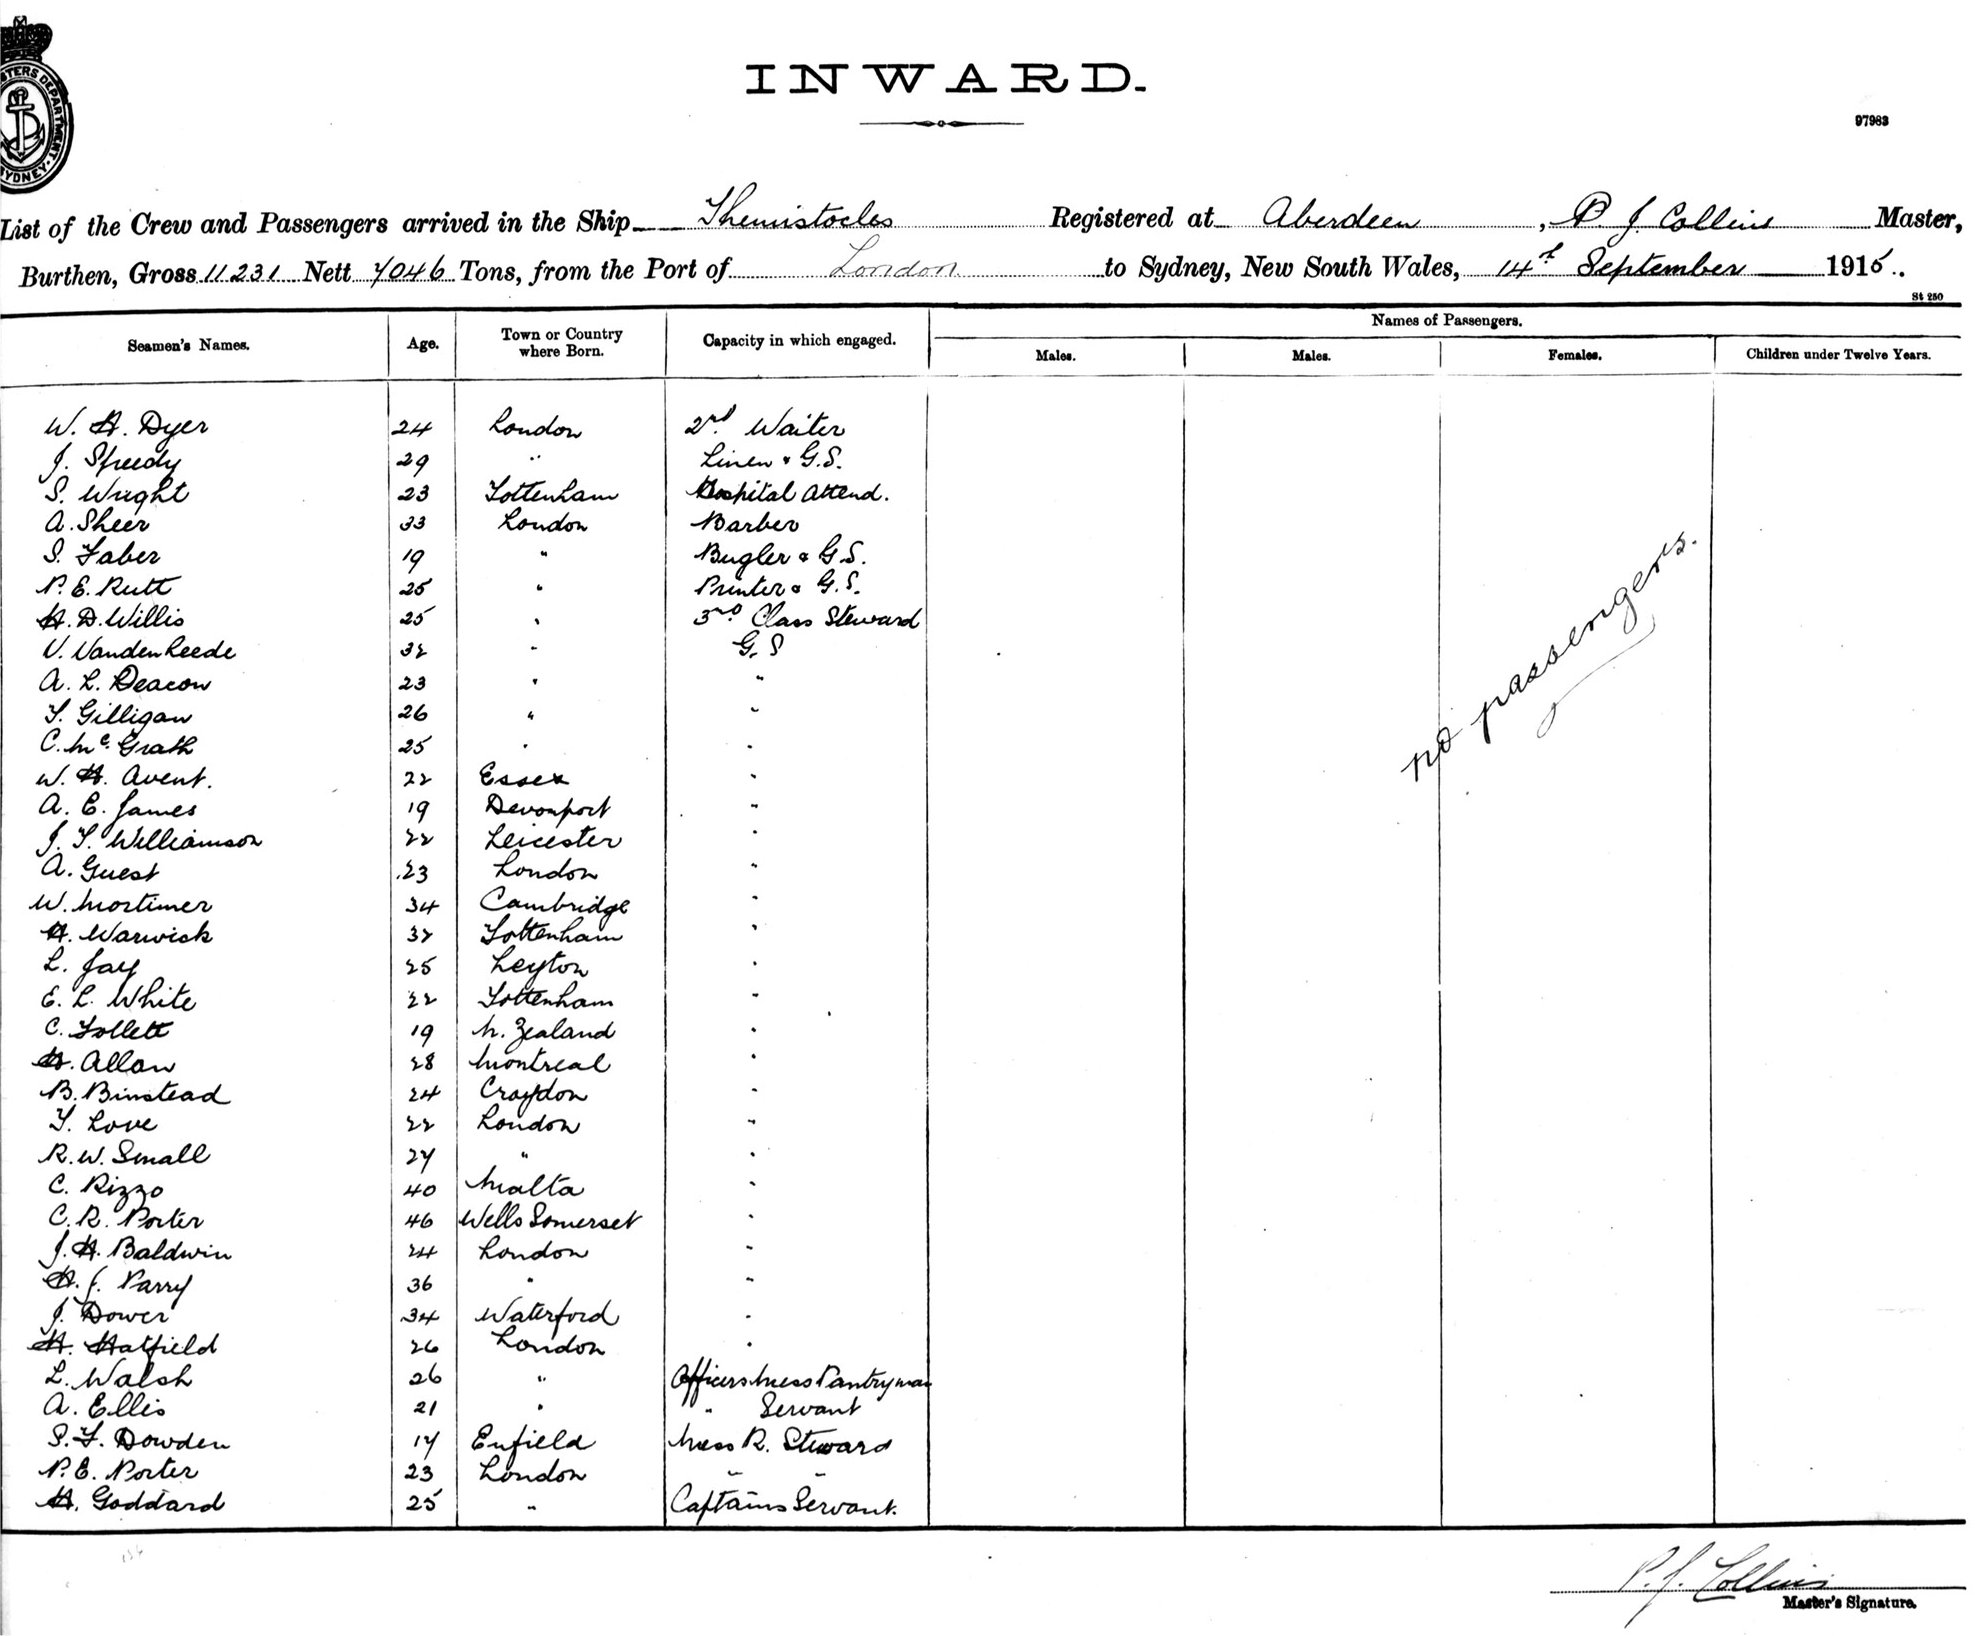 INWARD.
97983
STERS DEPARTMENT. SYDNEY
List of the Crew and Passengers arrived in the Ship Themistocles Registered at Aberdeen, P. J. Collins Master,
Burthen, Gross 11231 Nett 7046 Tons, from the Port of London to Sydney, New South Wales, 14th September 1915.
St 250
Seamen's Names. Age. Town or Country where Born. Capacity in which engaged. Names of Passengers.
Males. Males. Females. Children under Twelve Years.
W. H. Dyer 24 London 2nd Waiter
J. Speedy 29 " Linen & G.S.
S. Wright 23 Tottenham Hospital Attend.
A. Sheer 33 London Barber
S. Faber 19 " Bugler & G.S.
P. E. Rutt 25 " Printer & G.S.
H. D. Willis 25 " 3rd Class Steward
V. Vandenheede 32 " G.S
A. L. Deacon 23 " "
T. Gilligan 26 " "
C. McGrath 25 " "
W. H. Avent. 22 Essex "
A. E. James 19 Devonport "
J. T. Williamson 22 Leicester "
A. Guest 23 London "
W. Mortimer 34 Cambridge "
H. Warwick 32 Tottenham "
L. Jay 25 Leyton "
E. L. White 22 Tottenham "
C. Follett 19 N. Zealand "
H. Allan 28 Montreal "
B. Binstead 24 Croydon "
T. Love 22 London "
R. W. Small 27 " "
C. Rizzo 40 Malta "
C. R. Porter 46 Wells Somerset "
J. H. Baldwin 24 London "
H. J. Parry 36 " "
J. Dower 34 Waterford "
H. Hatfield 26 London "
L. Walsh 26 " Officers Mess Pantryman
A. Ellis 21 " " Servant
S. F. Dowden 17 Enfield Mess R. Steward
P. E. Porter 23 London " "
H. Goddard 25 " Captains Servant.
no passengers.
P. J. Collins
Master's Signature.